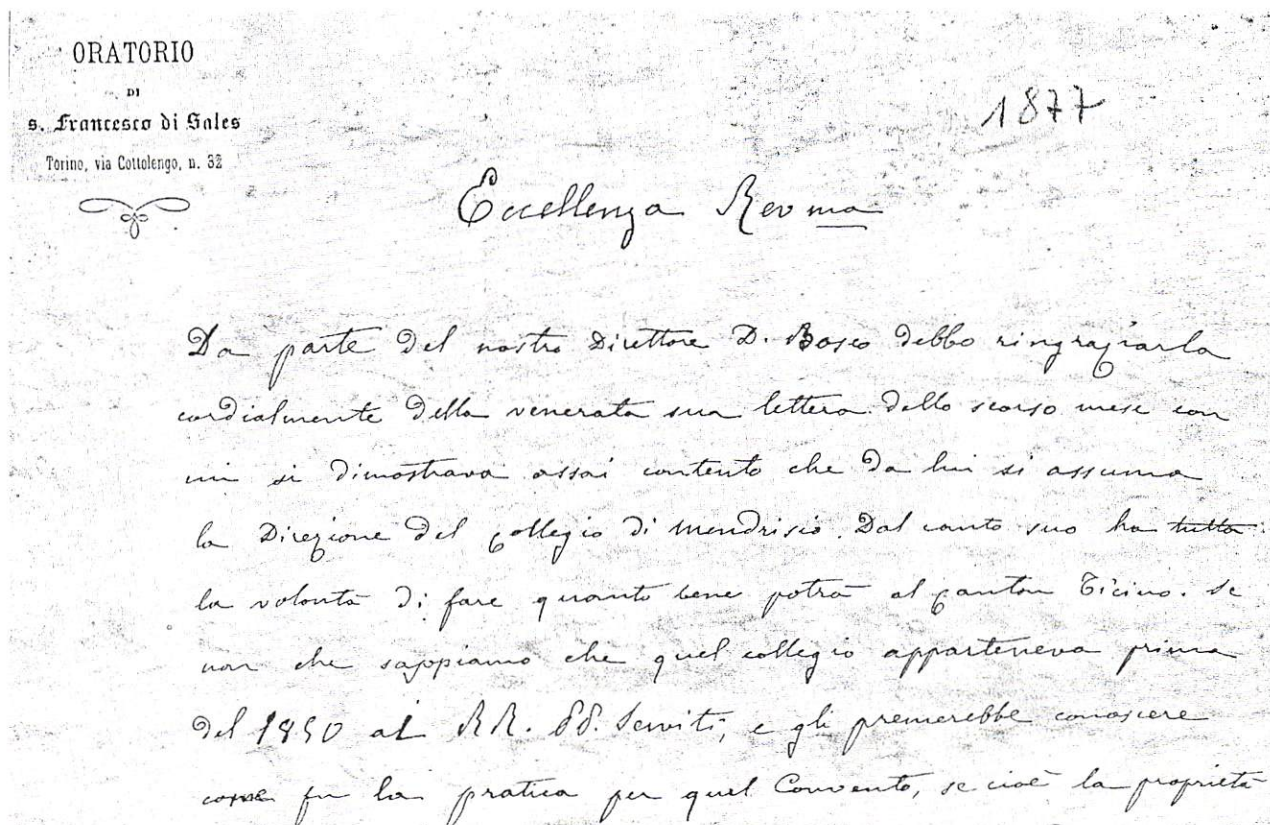 ORATORIO
DI
s. Francesco di Sales
Torino, via Cottolengo, n. 32
1877
Eccellenza Revma
Da parte del nostro Direttore D. Bosco debbo ringraziarla
cordialmente della venerata sua lettera dello scorso mese con
cui si dimostrava assai contento che da lui si assuma
la Direzione del collegio di Mendrisio. Dal canto suo ha tutta
la volontà di fare quanto bene potrà al Canton Ticino. Se
non che sappiamo che quel collegio apparteneva prima
del 1850 ai RR. PP. Serviti, e gli premerebbe conoscere
come fu la pratica per quel Convento, se cioè la proprietà